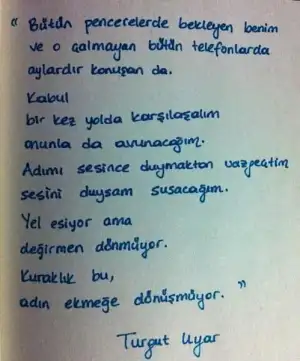 “ Bütün pencerelerde bekleyen benim
ve o çalmayan bütün telefonlarda
aylardır konuşan da.
Kabul
bir kez yolda karşılaşalım
onunla da avunacağım.
Adımı sesince duymaktan vazgeçtim
sesini duysam susacağım.
Yel esiyor ama
değirmen dönmüyor.
Kuraklık bu,
adın ekmeğe dönüşmüyor. ”
Turgut Uyar